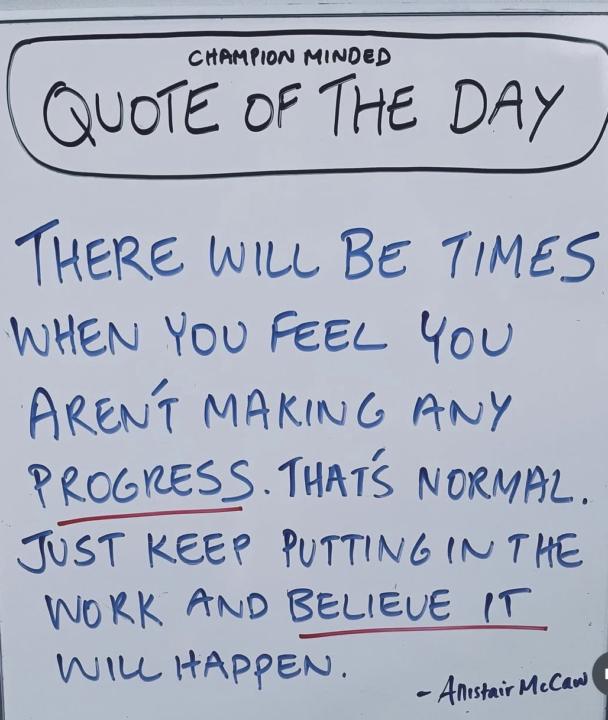 CHAMPION MINDED
QUOTE OF THE DAY
THERE WILL BE TIMES
WHEN YOU FEEL YOU
AREN'T MAKING ANY
PROGRESS. THAT'S NORMAL.
JUST KEEP PUTTING IN THE
WORK AND BELIEVE IT
WILL HAPPEN.
- Allistair McCaw